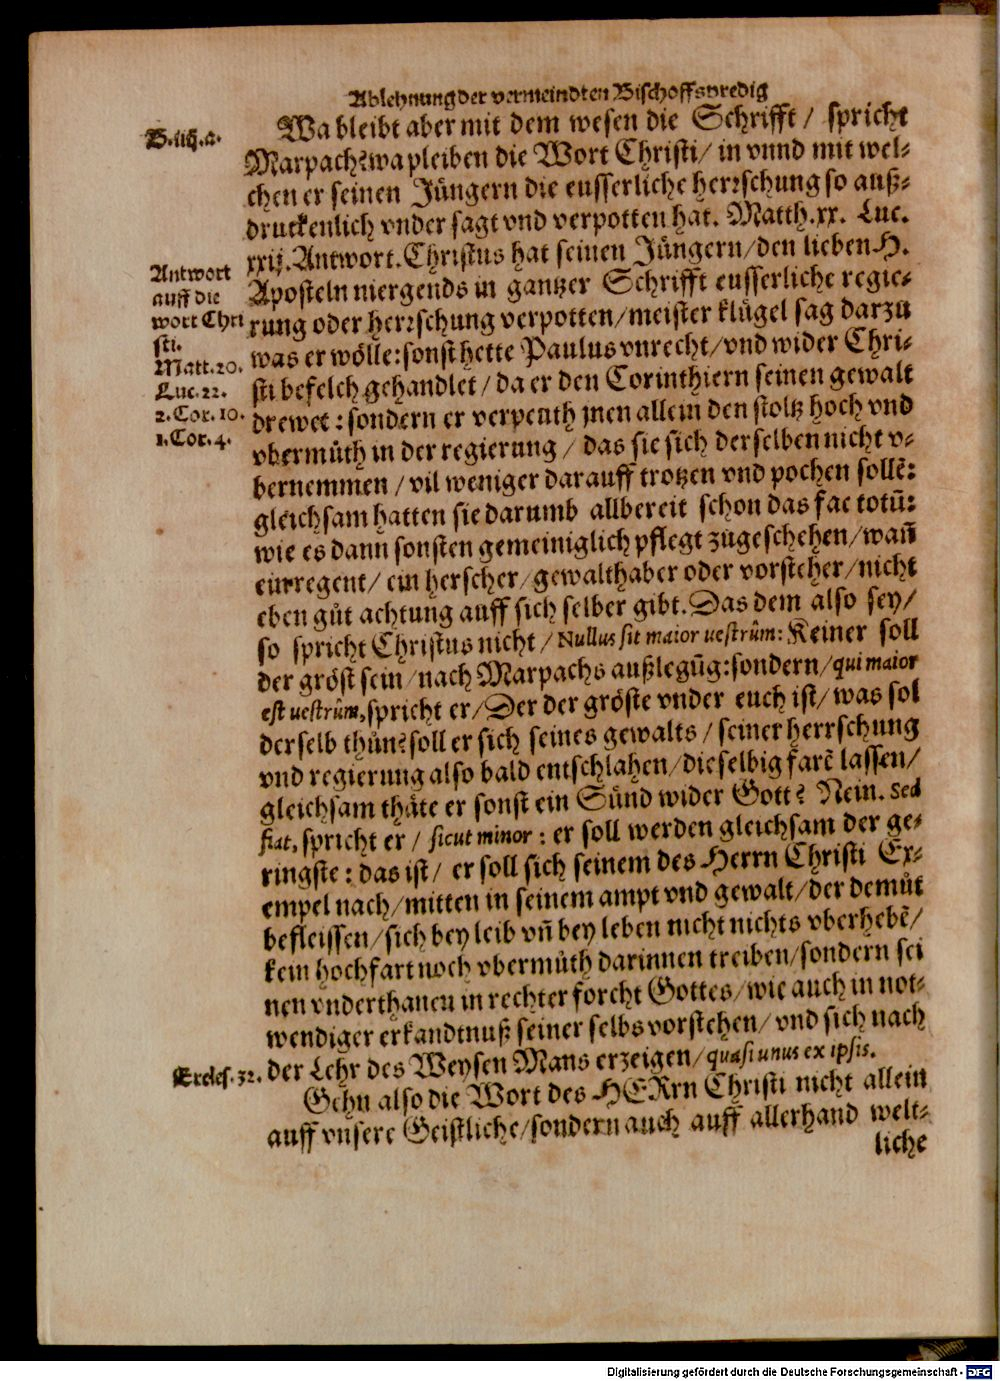 Ablehnung der vermeindten Bischoffspredig
B.iiij.a.
Wa bleibt aber mit dem wesen die Schrifft / spricht
Marpach? wa pleiben die Wort Christi / in vnnd mit wel⸗
chen er seinen Jüngern die eusserliche herrschung so auß⸗
druckenlich vnder sagt vnd verpotten hat. Matth.xx. Luc.
xxij. Antwort. Christus hat seinen Jüngern / den lieben H.
Antwort
auff die
wort Chri
sti.
Matt.20.
Luc.22.
2.Cor.10.
1.Cor.4.
Aposteln niergends in gantzer Schrifft eusserliche regie⸗
rung oder herrschung verpotten / meister klügel sag darzu
was er wölle: sonst hette Paulus vnrecht / vnd wider Chri⸗
sti befelch gehandlet / da er den Corinthiern seinen gewalt
drewet : sondern er verpeuth jnen allein den stoltz hoch vnd
vbermůth in der regierung / das sie sich derselben nicht v⸗
bernemmen / vil weniger darauff trotzen vnd pochen sollē:
gleichsam hatten sie darumb allbereit schon das fac totū:
wie es dann sonsten gemeiniglich pflegt zůgeschehen / wañ
ein regent / ein herscher / gewalthaber oder vorsteher / nicht
eben gůt achtung auff sich selber gibt. Das dem also sey /
so spricht Christus nicht / Nullus sit maior uestrûm: Keiner soll
der gröst sein / nach Marpachs außlegūg: sondern / qui maior
est uestrûm, spricht er / Der der gröste vnder euch ist / was sol
derselb thůn? soll er sich seines gewalts / seiner herrschung
vnd regierung also bald entschlahen / dieselbig farē lassen /
gleichsam thäte er sonst ein Sünd wider Gott? Nein. Sed
fiat, spricht er / sicut minor : er soll werden gleichsam der ge⸗
ringste : das ist / er soll sich seinem des Herrn Christi Ex⸗
empel nach / mitten in seinem ampt vnd gewalt / der demůt
befleissen / sich bey leib vñ bey leben nicht nichts vberhebē /
kein hochfart noch vbermůth darinnen treiben / sondern sei
nen vnderthanen in rechter forcht Gottes / wie auch in not⸗
wendiger erkandtnuß seiner selbs vorstehen / vnd sich nach
Eccles.32. der Lehr des Weysen Mans erzeigen / quasi unus ex ipsis.
Gehn also die Wort des HERrn Christi nicht allein
auff vnsere Geistliche / sondern auch auff allerhand welt⸗
liche
Digitalisierung gefördert durch die Deutsche Forschungsgemeinschaft - DFG